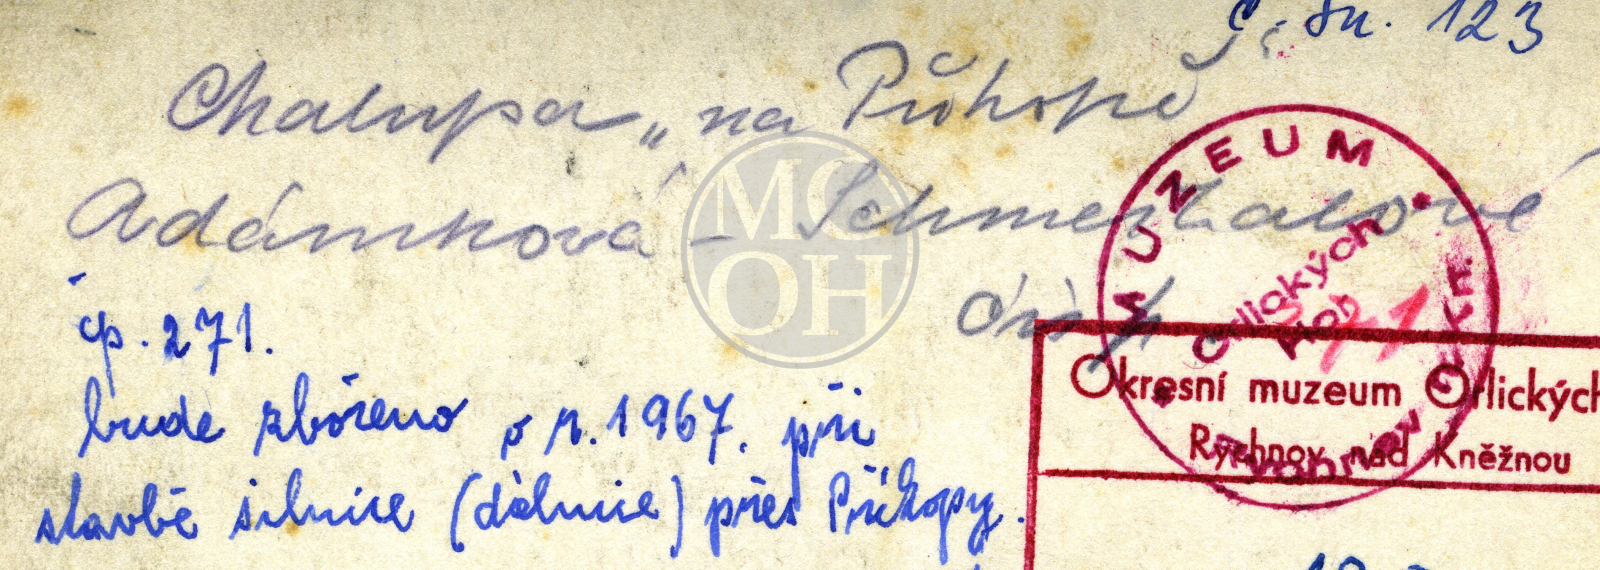 č. sn. 123
Chalupa „na Příkopě
Adámková - Schmerhalové
čp. 271.
bude zbořeno v r. 1967. při
stavbě silnice (dálnice) přes Příkopy.
MUZEUM
Orlických
hor
Rychnov
n. Kn.
Okresní muzeum Orlických
Rychnov nad Kněžnou
MG
OH